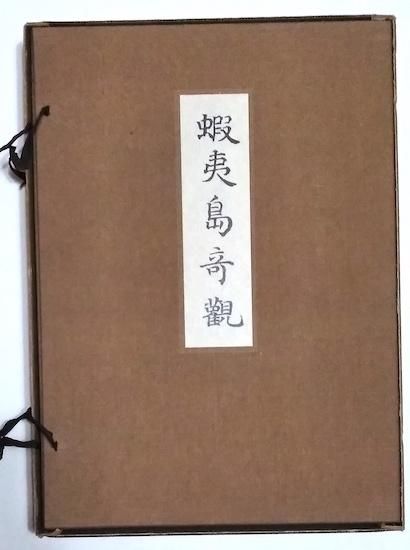 蝦夷島奇觀